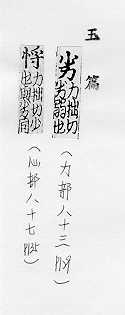 玉篇
劣力拙切
少劣弱也
（力部八十三 P129）
㤠力拙切少
也與劣同
（心部八十七 P135）